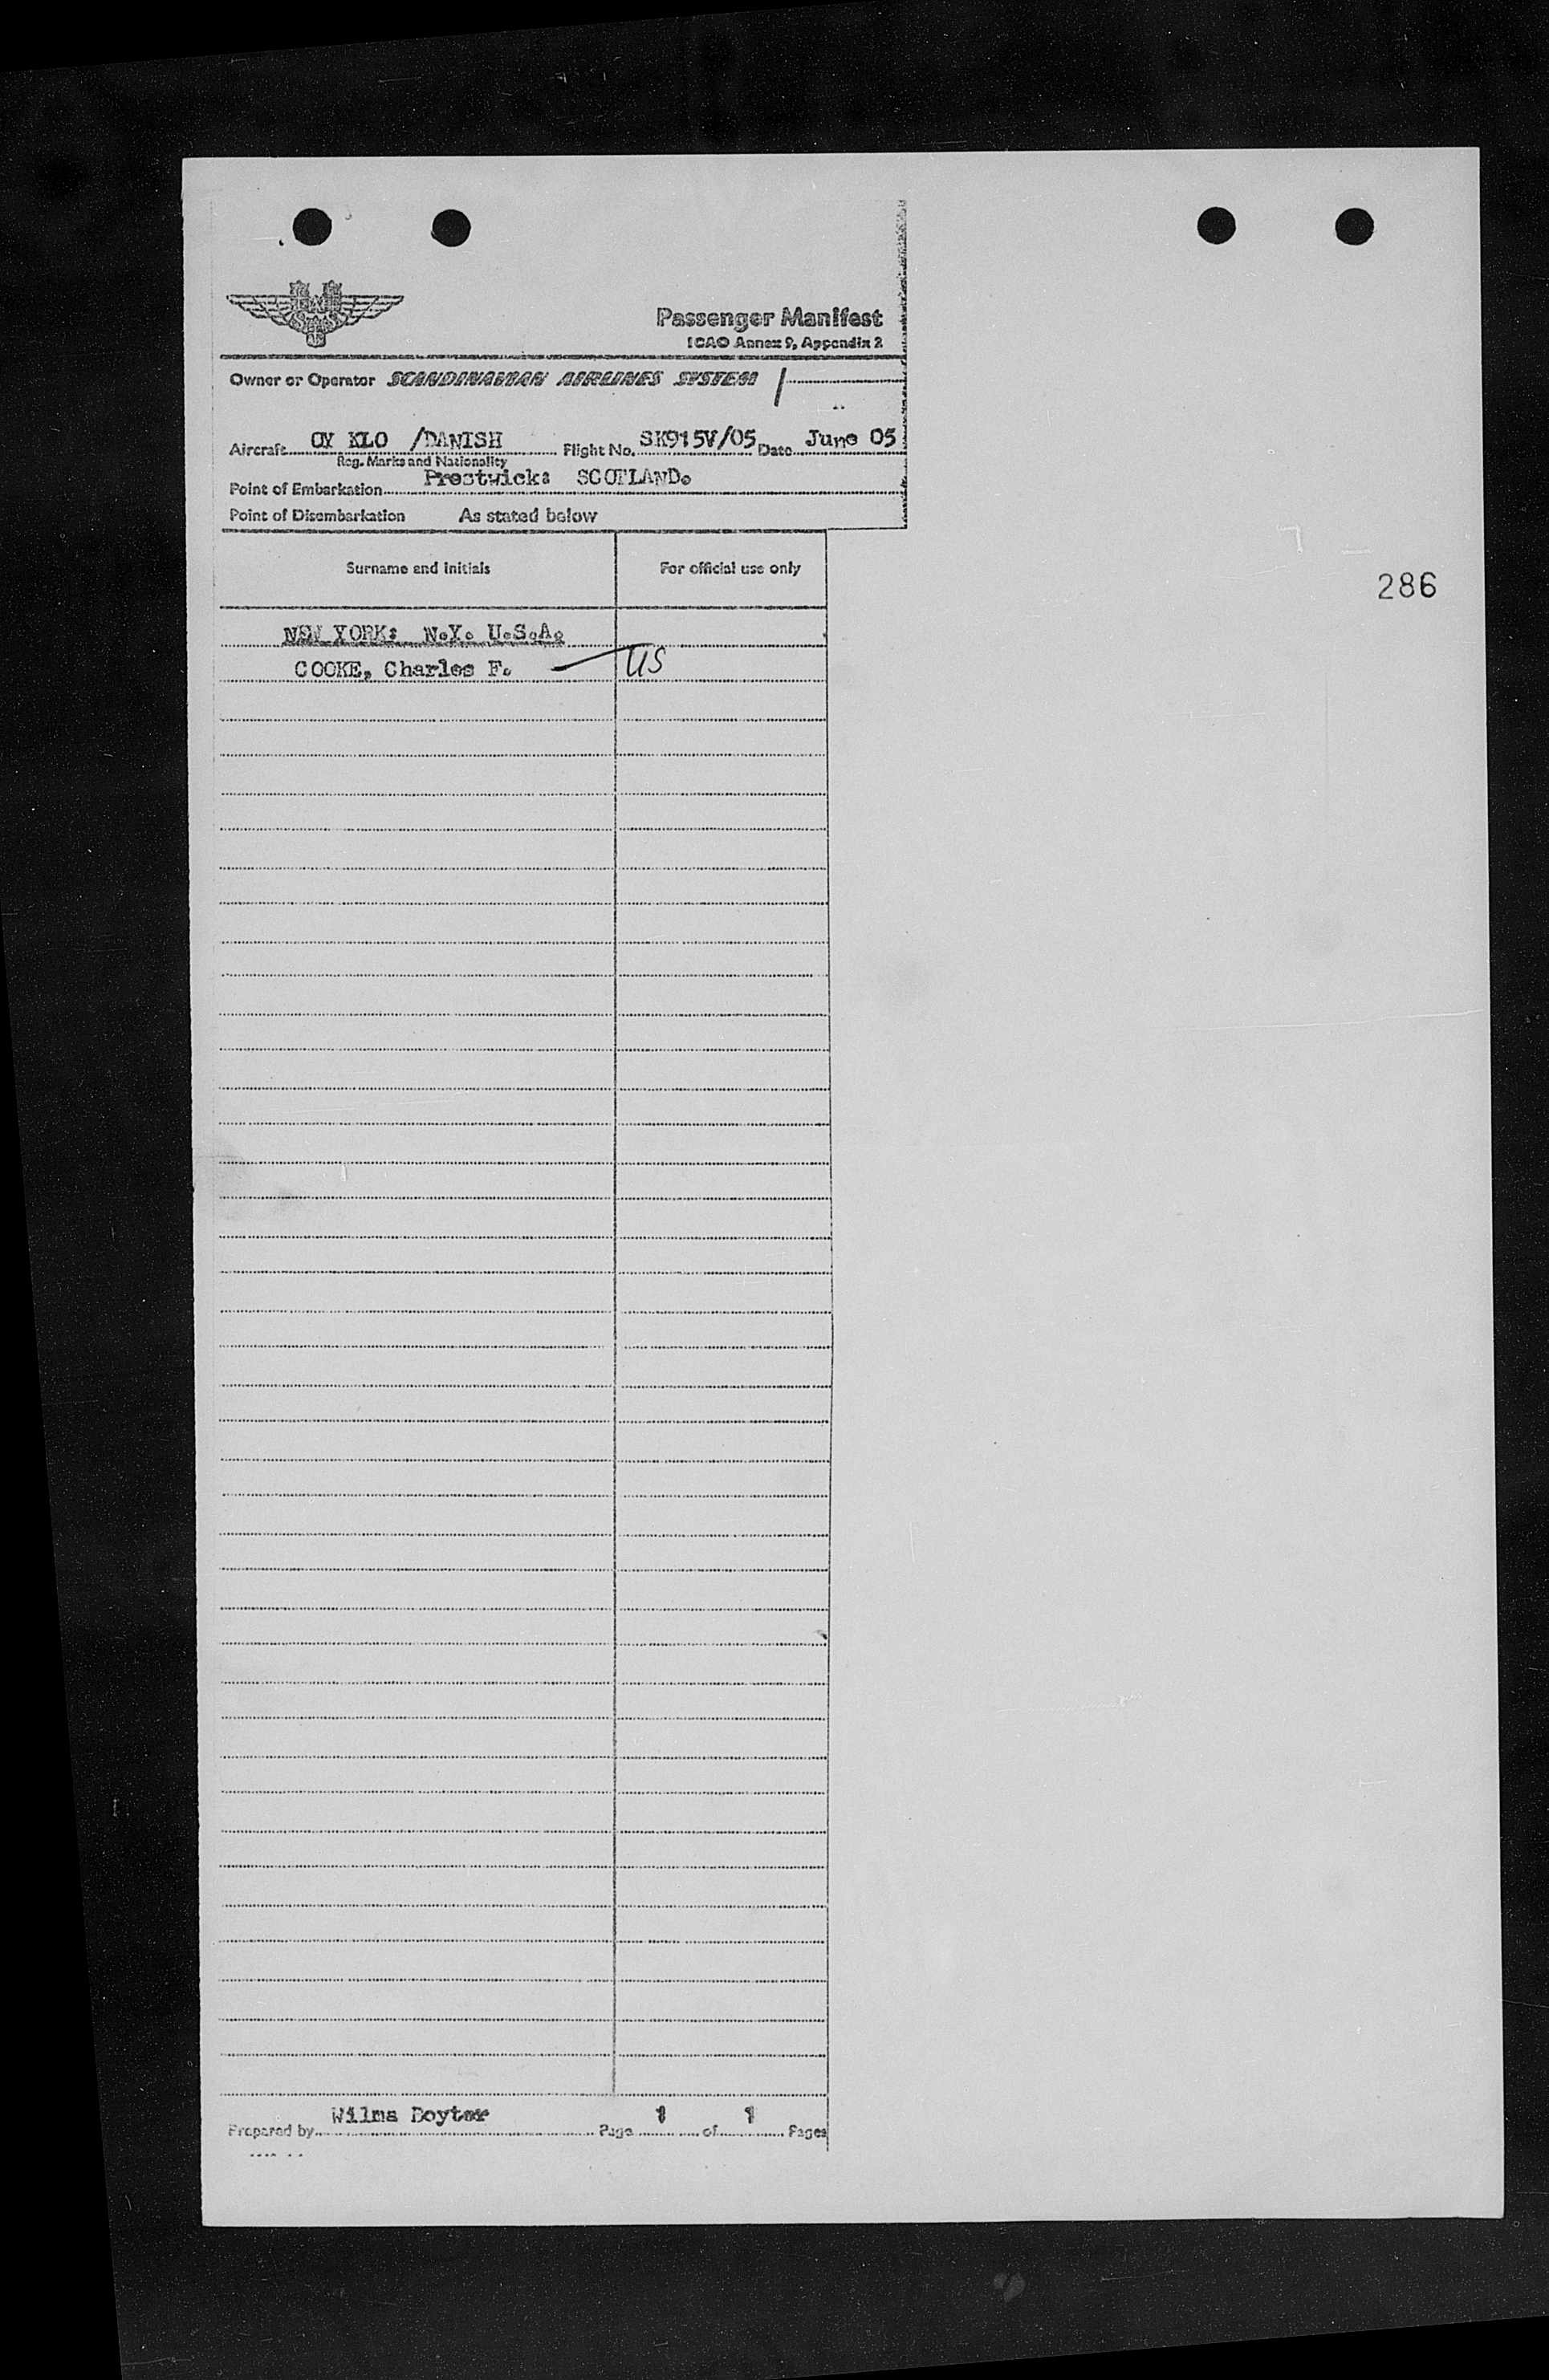 Passenger Manifest
ICAO Annex 9, Appendix 2
Owner or Operator SCANDINAVIAN AIRLINES SYSTEM
Aircraft OY KLO /DANISH Flight No. SK915V/05 Date June 05
Reg. Marks and Nationality
Point of Embarkation Prestwick: SCOTLAND.
Point of Disembarkation As stated below
Surname and initials For official use only
286
NEW YORK: N.Y. U.S.A.
COOKE, Charles F. US
Wilma Doyter
Prepared by Page 1 of 1 Pages